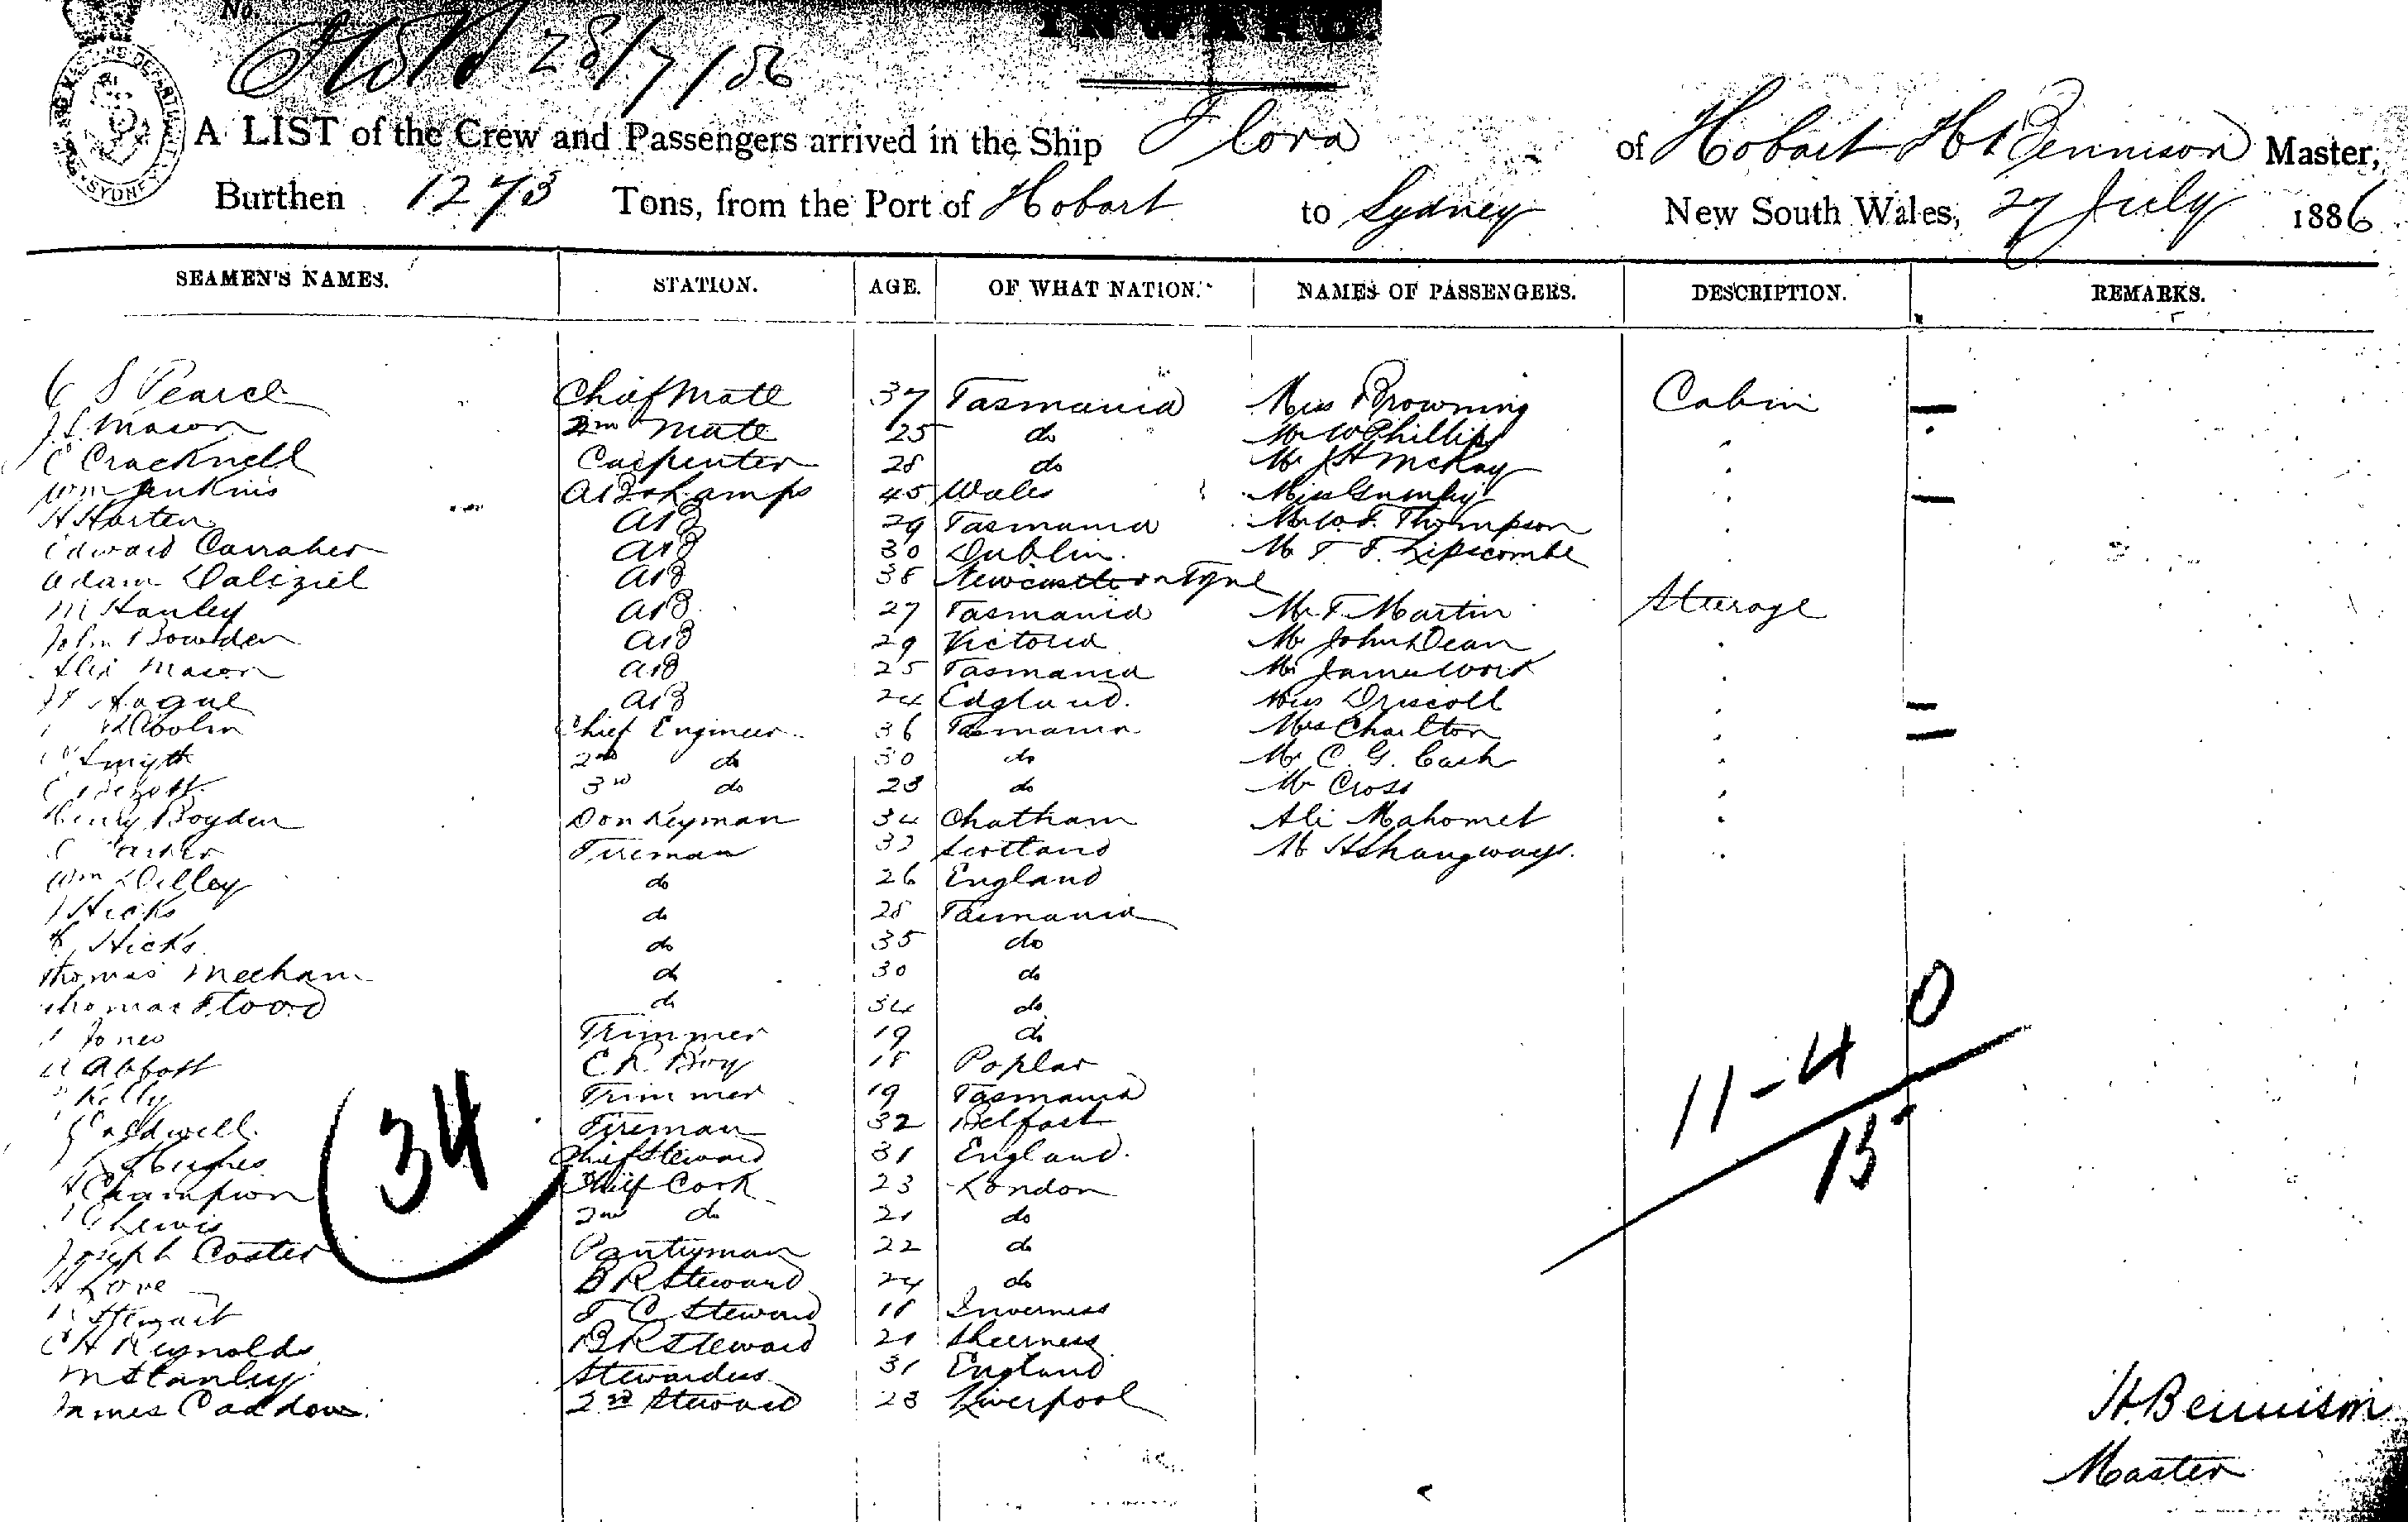 No.
INWARD.
28/7/86
A LIST of the Crew and Passengers arrived in the Ship Flora of Hobart H Bennison Master,
Burthen 1273 Tons, from the Port of Hobart to Sydney New South Wales, 27 July 1886
SEAMEN'S NAMES. STATION. AGE. OF WHAT NATION. NAMES OF PASSENGERS. DESCRIPTION. REMARKS.
S Pearce Chief Mate 37 Tasmania Miss Browning Cabin
J.S. Mason Mate 25 do Mr W Phillips
C Cracknell Carpenter 28 do Mr J H McKay
Wm Jenkins AB & Lamps 45 Wales Miss
H Harten AB 29 Tasmania Thompson
Edward Carraher AB 30 Dublin. Lipscombe
Adam Dalziel AB 38 Newcastle on Tyne
M Hanley AB. 27 Tasmania Mr T. Martin Steerage
John Bowden AB 29 Victoria Mr John Dean
Alex Mason AB 25 Tasmania Mr James Work
Hague AB 24 England. Miss Driscoll
Chief Engineer 36 Tasmania Mrs Charlton
Smyth 2nd do 30 do Mr C. G. Cash
3rd do 28 do Mr Cross
Henry Boyden Donkeyman 34 Chatham Ali Mahomet
Fireman Scotland
Wm Dilley do 26 England
J Hicks do 28 Tasmania
Hicks do 35 do
Thomas Meehan do 30 do
Thomas Flood do 34 do
Jones Trimmer 19 do
Abbott Boy 18 Poplar
Kelly Trimmer 19 Tasmania
Caldwell Fireman 32 Belfast
Hughes Chief Steward 31 England.
Champion Chief Cook 23 London
Lewis 2nd do 21 do
Joseph Coster Pantryman 22 do
H Love B R Steward 24 do
Stewart F C Steward 18 Inverness
C H Reynolds B R Steward 21 Sheerness
M Stanley Stewardess 31 England
James 2nd Steward 28 Liverpool
34
11-4
0
15
H. Bennison
Master